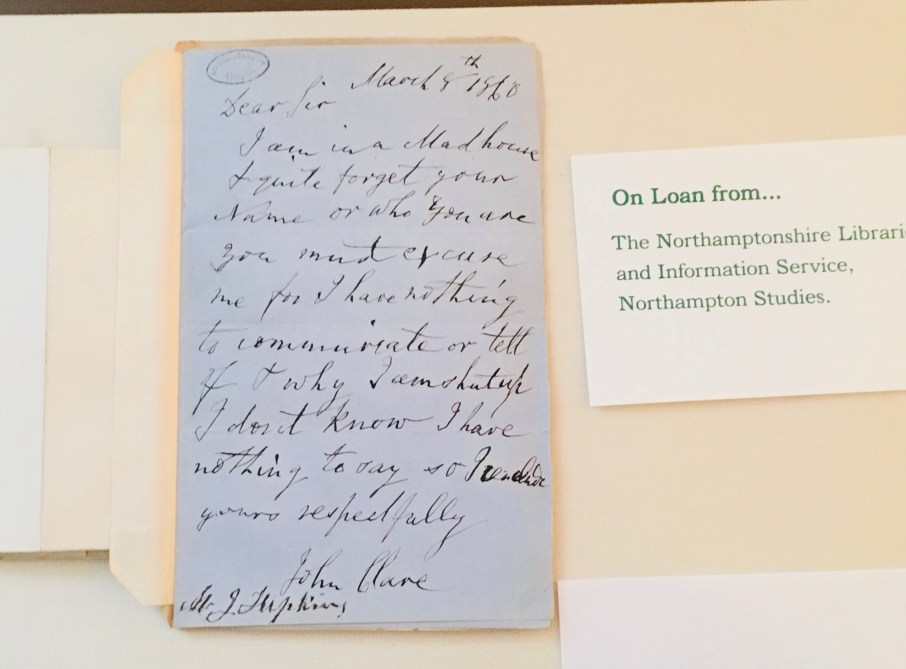 March 8th 1860
Dear Sir
I am in a Madhouse
& quite forget your
Name or who you are
you must excuse
me for I have nothing
to communicate or tell
of & why I am shut up
I dont know I have
nothing to say so I conclude
yours respectfully
John Clare
Mr J. Hipkins
On Loan from...
The Northamptonshire
and Information Service,
Northampton Studies.